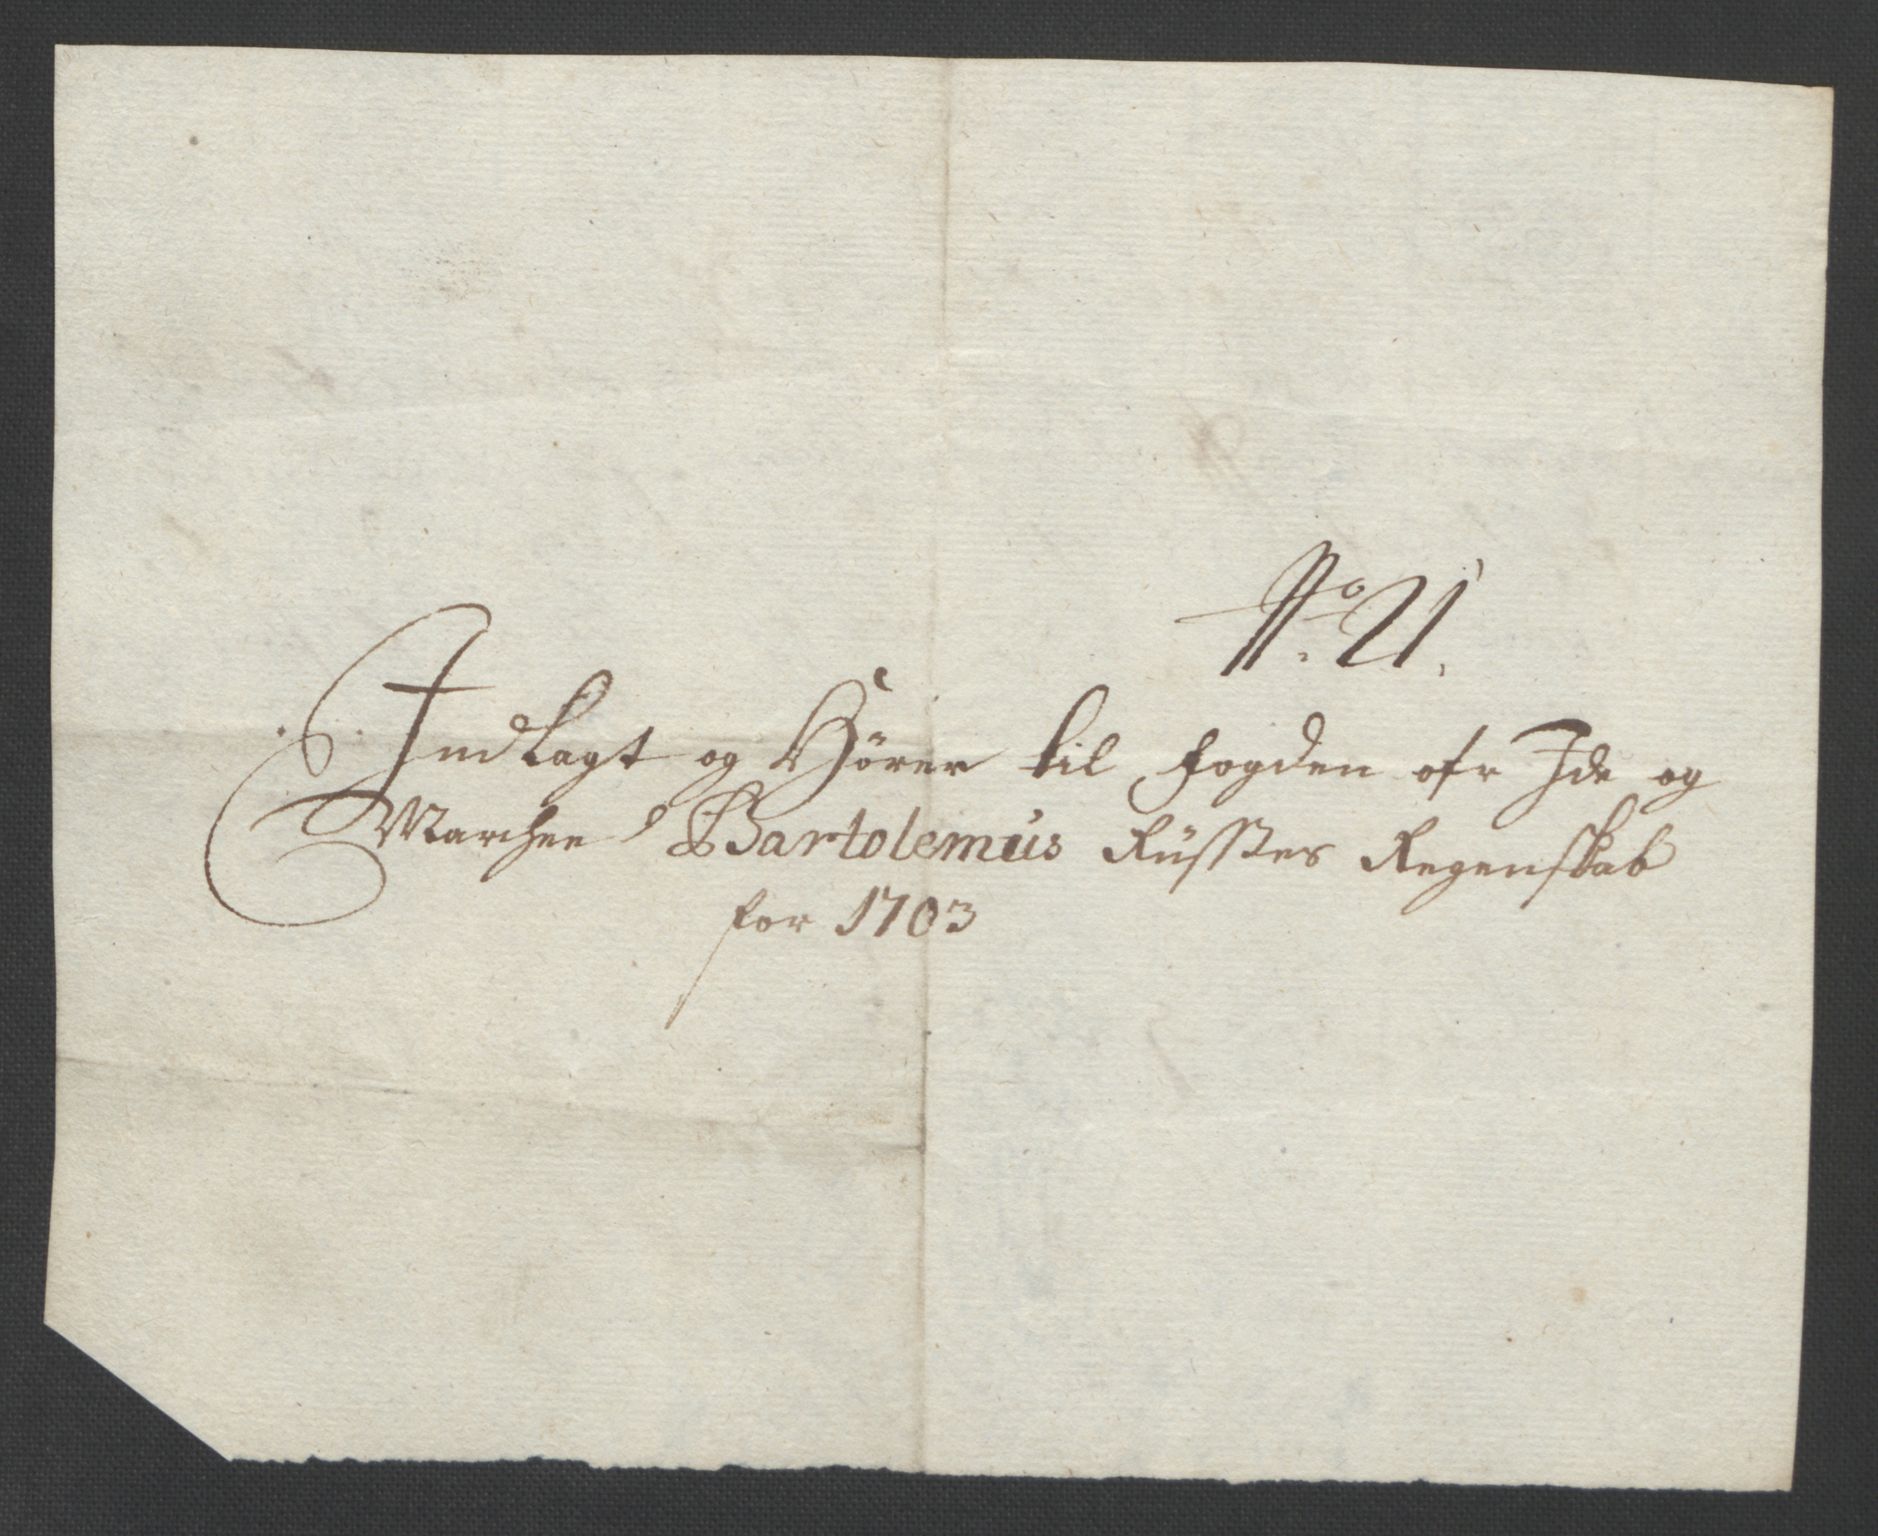 No. 21.
Indlagt og Hörer til fogden ofr Ide og
Marchee Bartolemüs Rüsstes Regenskab
for 1703